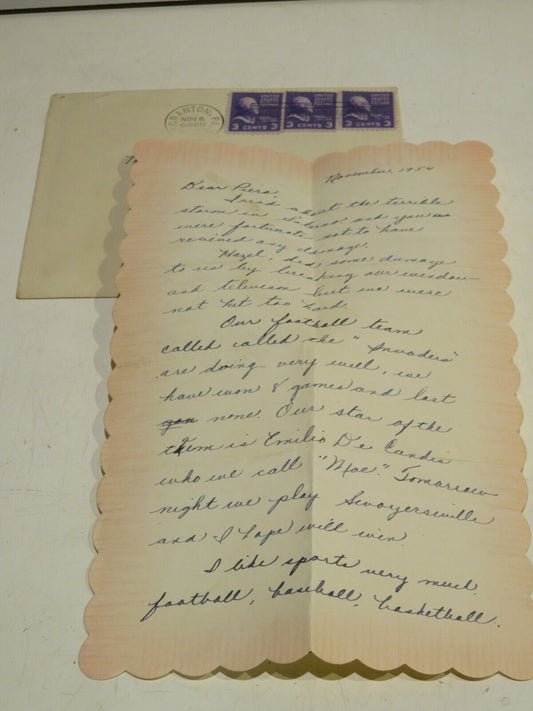 SCRANTON, PA.
NOV 5
UNITED STATES POSTAGE
3 CENTS 3
UNITED STATES POSTAGE
3 CENTS 3
UNITED STATES POSTAGE
3 CENTS 3
November, 1954
Dear Piero,
I read about the terrible
storm in and you
were fortunate not to have
received any damage.
Hazel, did some damage
to us by breaking our window
and television but we were
not hit too hard.
Our football team
called called the "Invaders"
are doing very well, we
have won 8 games and lost
none. Our star of the
team is Emilio De Candis
who we call "Moe". Tomorrow
night we play Swoyersville
and I hope will win.
I like sports very much,
football, baseball, basketball.